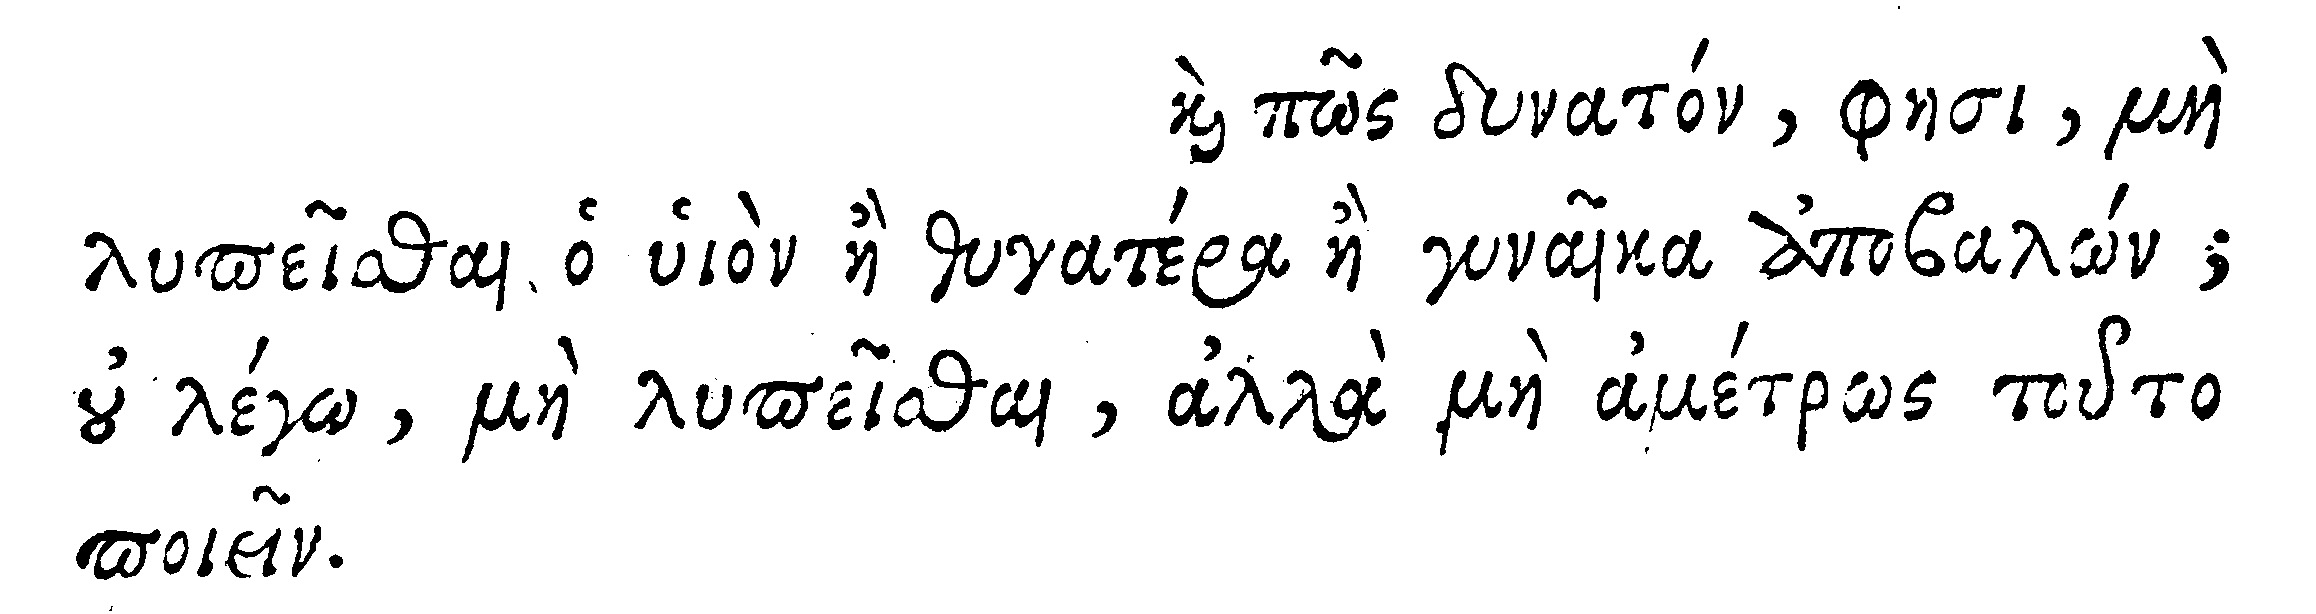 καὶ πῶς δυνατόν, φησι, μὴ
λυπεῖσθαι ὁ υἱὸν ἢ θυγατέρα ἢ γυναῖκα ἀποβαλών;
οὐ λέγω, μὴ λυπεῖσθαι, ἀλλὰ μὴ ἀμέτρως τοῦτο
ποιεῖν.